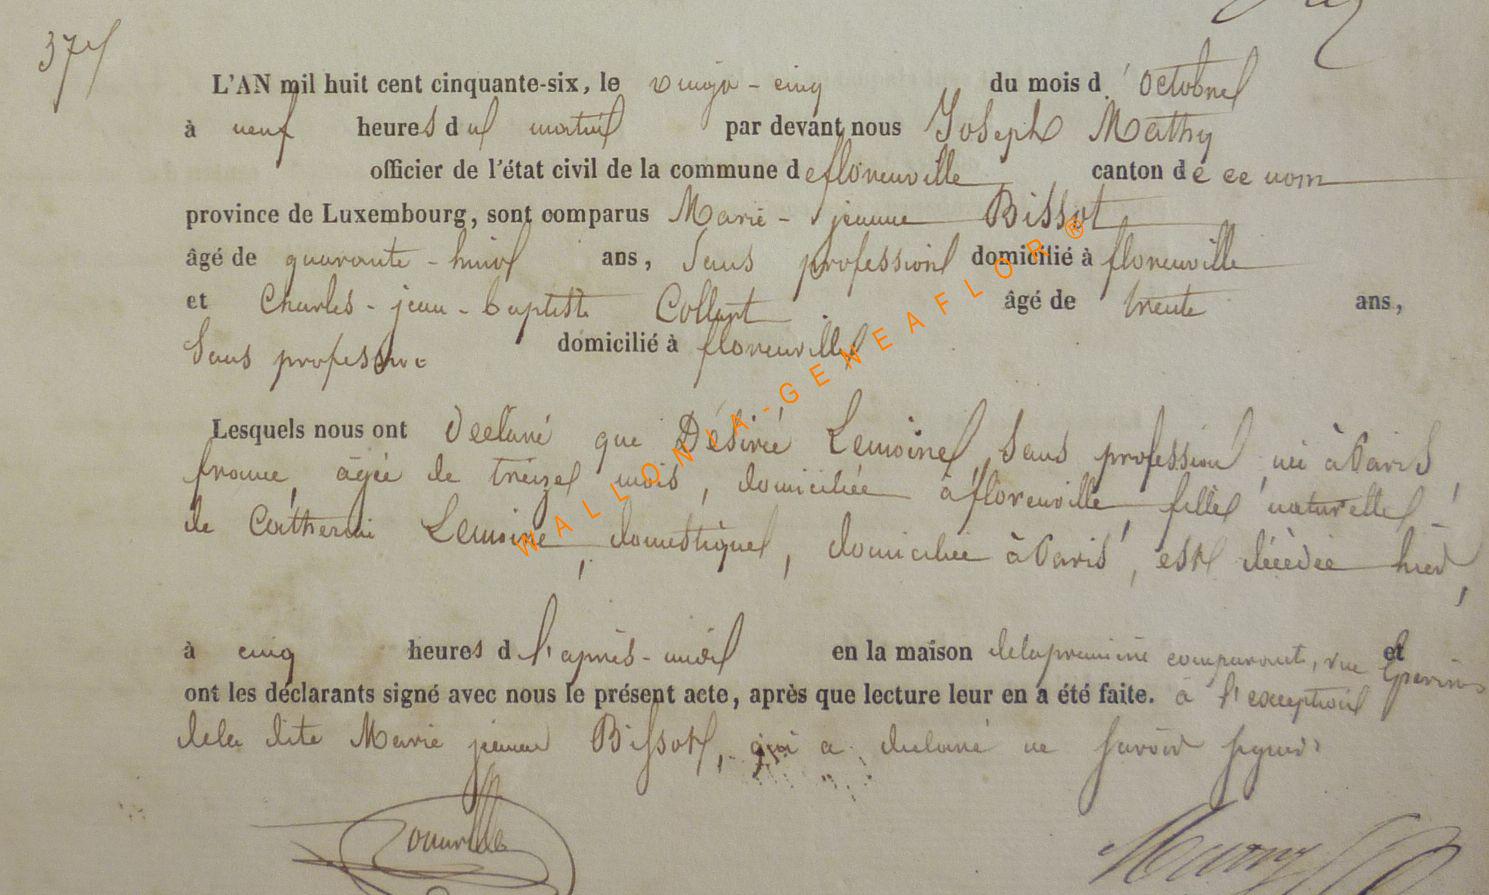 37
L'AN mil huit cent cinquante-six, le vingt-cinq du mois d'octobre
à neuf heures du matin par devant nous Joseph Mathy
officier de l'état civil de la commune de florenville canton de ce nom
province de Luxembourg, sont comparus Marie-jeanne Bissot
âgé de quarante-huit ans, Sans profession domicilié à florenville
et Charles-jean-baptiste Collart âgé de trente ans,
Sans profession domicilié à florenville
Lesquels nous ont déclaré que Désirée Lemoine, Sans profession, née à Paris,
france, âgée de treize mois, domiciliée à florenville, fille naturelle
de Catherine Lemoine, domestique, domiciliée à Paris, est décédée hier,
à cinq heures de l'après-midi en la maison de la première comparante, rue et
ont les déclarants signé avec nous le présent acte, après que lecture leur en a été faite. à l'exception
de la dite Marie jeanne Bissot, qui a déclaré ne savoir signer
WALLONIA-GENEAFLOR®